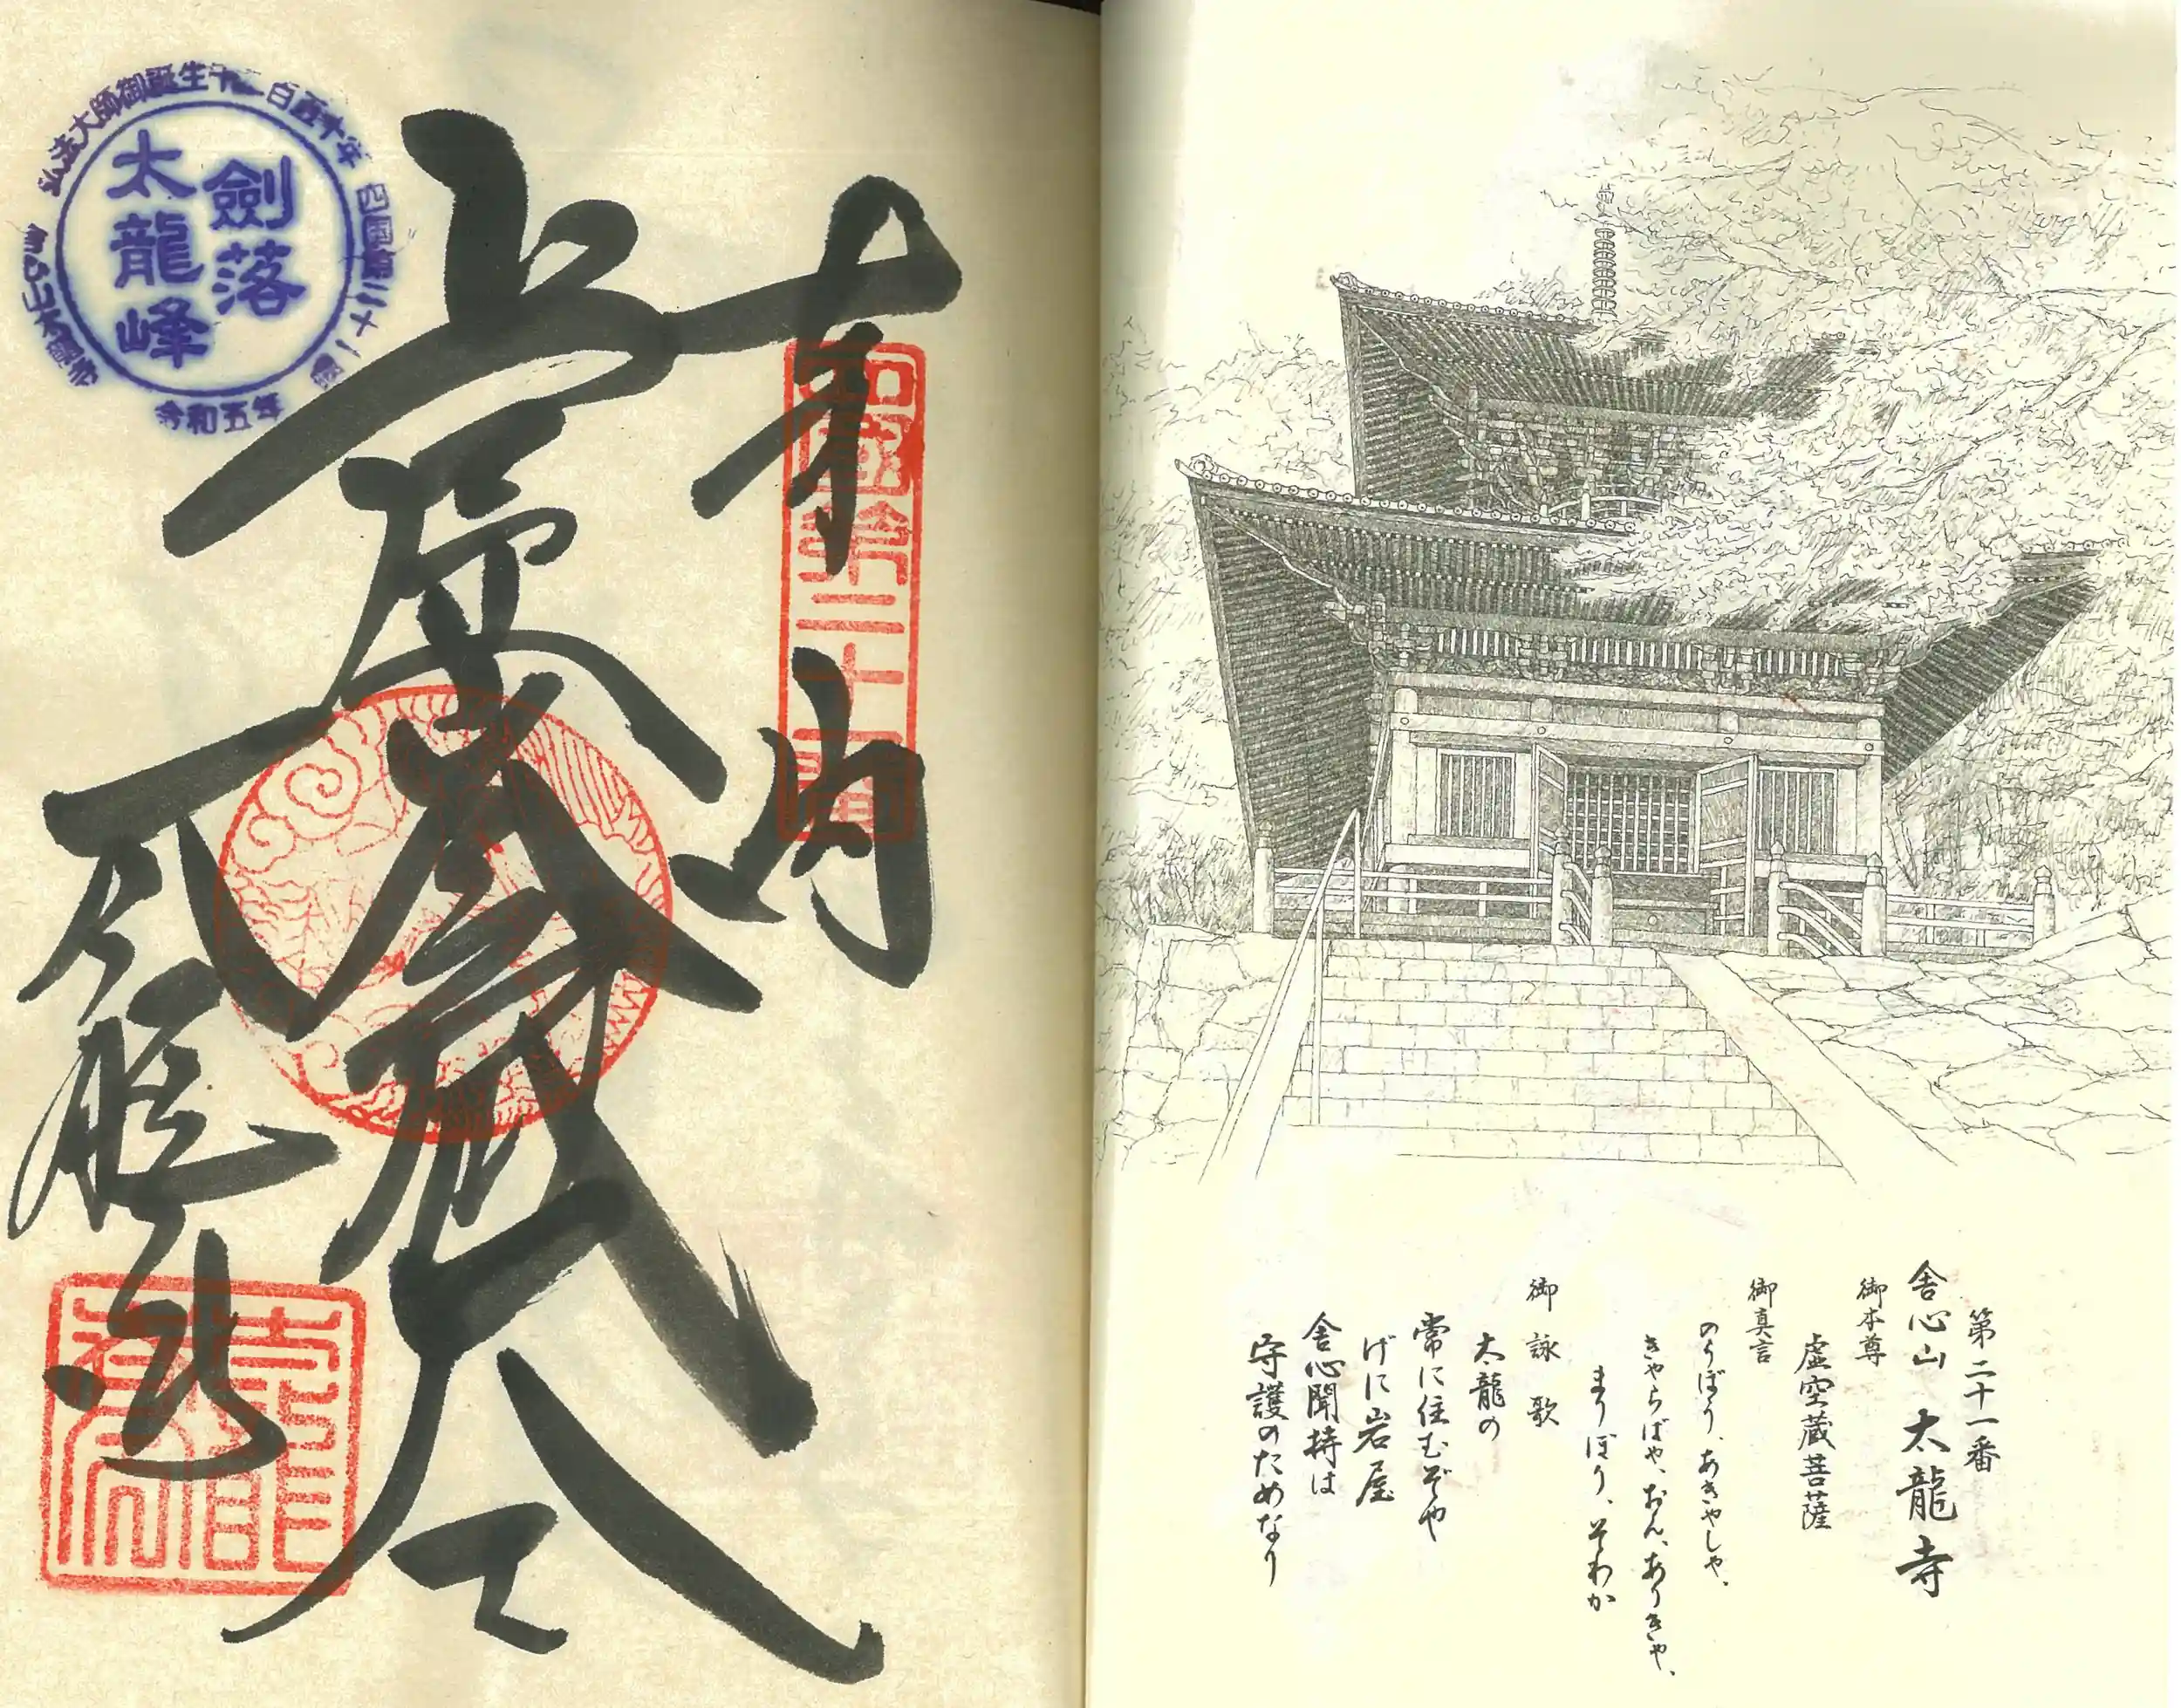 第二十一番
舎心山 太龍寺
御本尊
虚空蔵菩薩
御真言
のうぼう、あきゃしゃ、
きゃらばや、おん、ありきゃ、
まりぼり、そわか
御詠歌
太龍の
常に住むぞや
げに岩屋
舎心聞持は
守護のためなり
奉納
四國第二十一番
弘法大師御誕生千二百五十年
四国第二十一番
舎心山太龍寺
令和五年
劍落
太龍峰